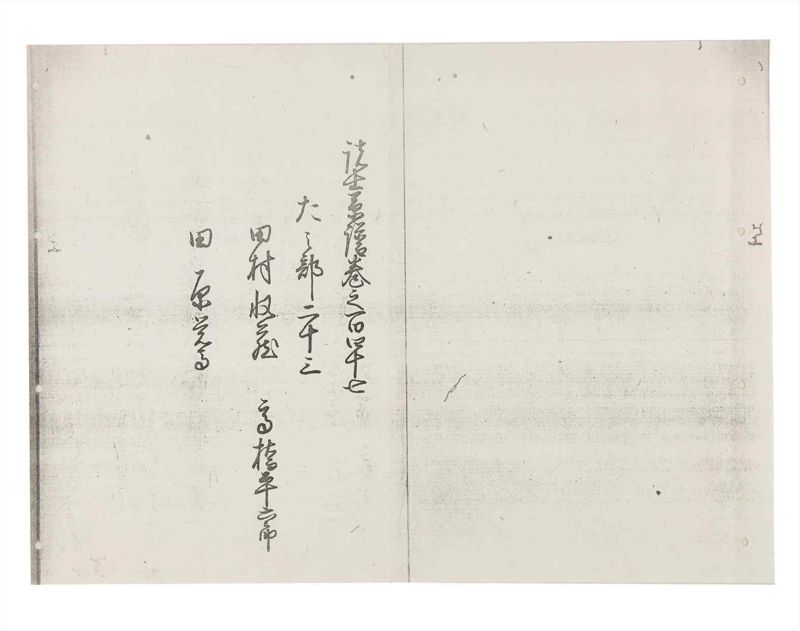 諸士系譜巻之百四十七
た之部二十三
田村収蔵 高橋平六郎
田原覚马